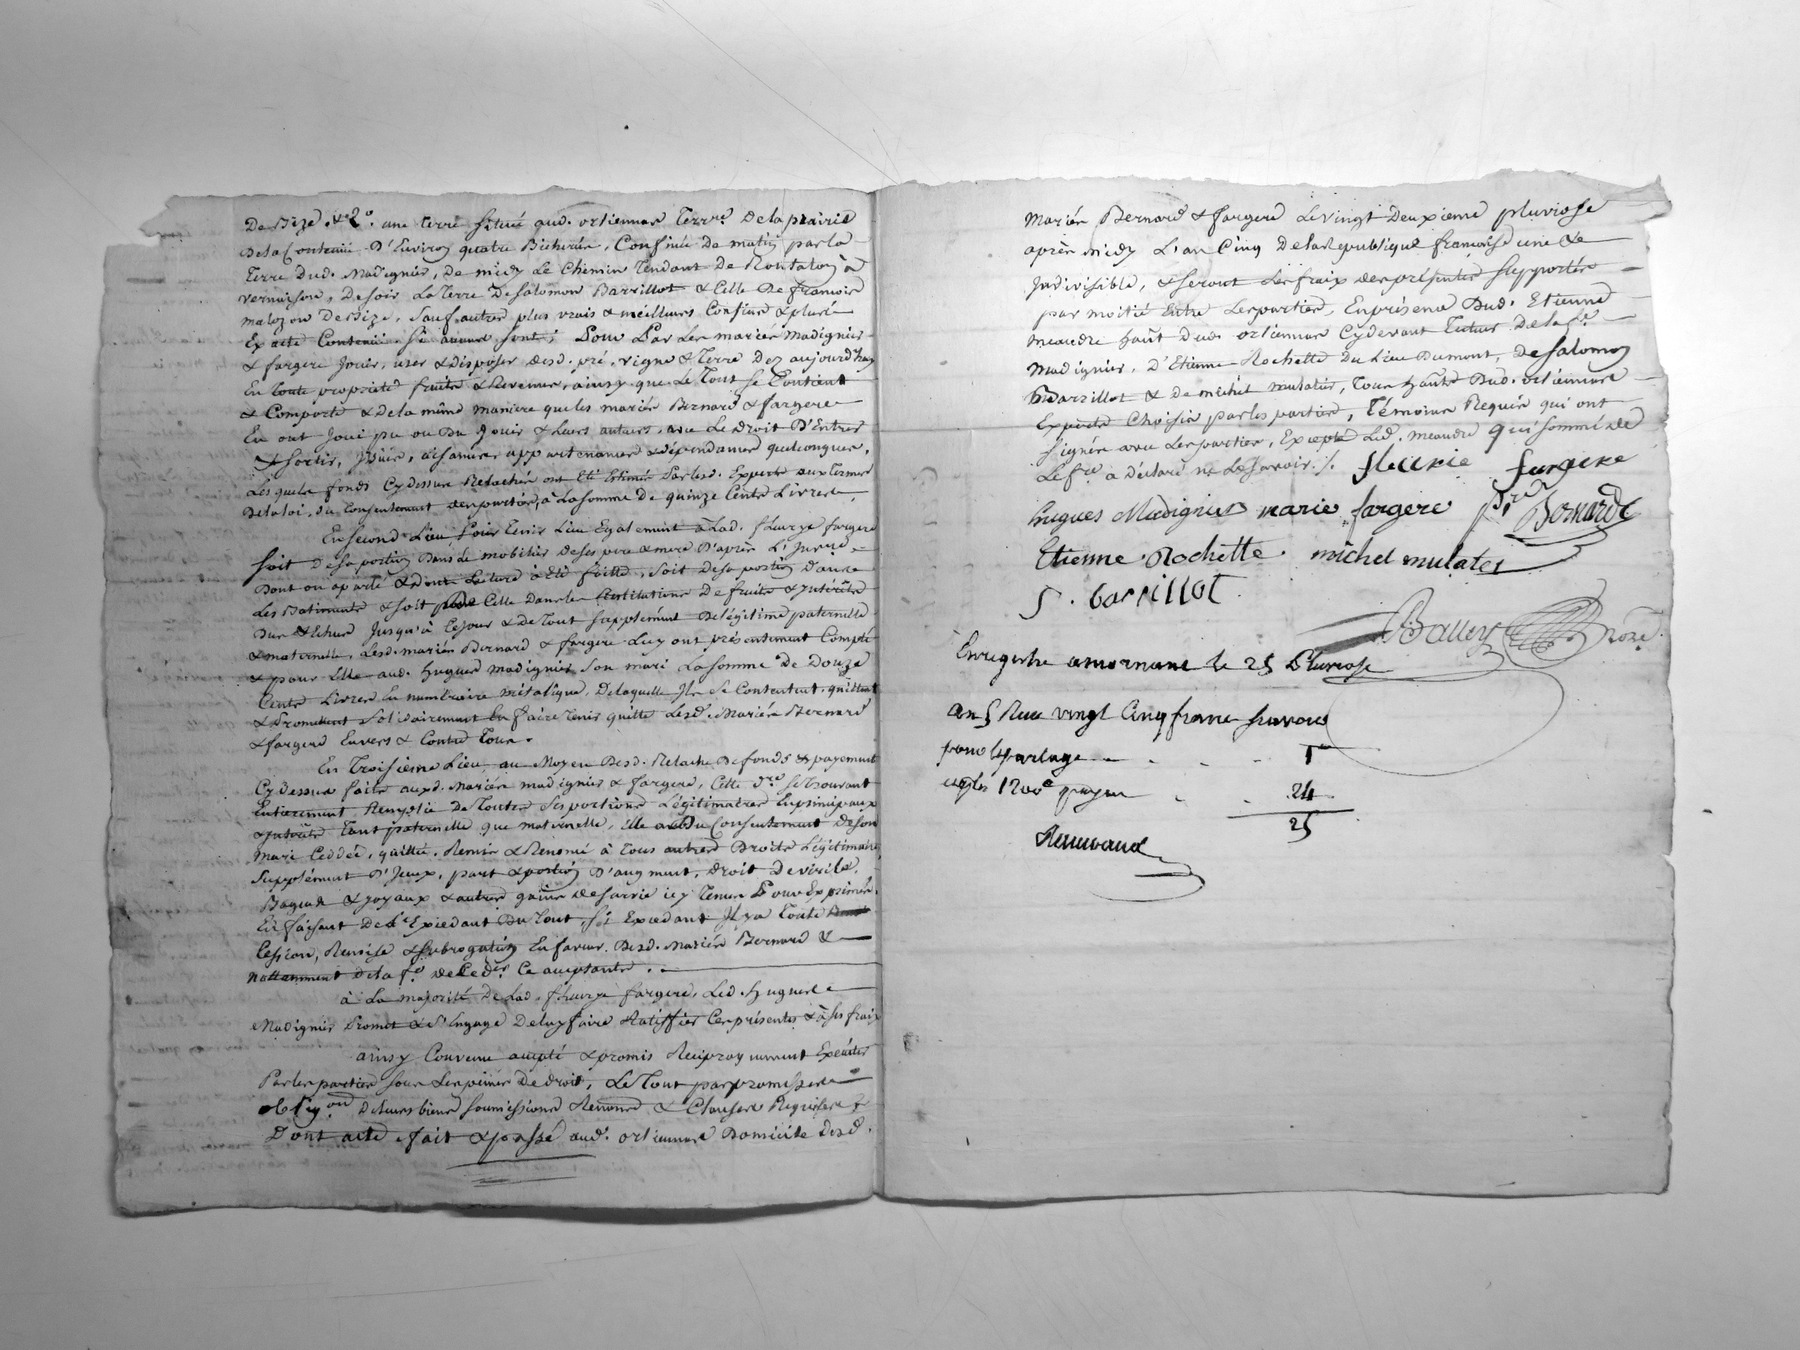 De Bize, &c 2°. une terre située aud. orliennas Terr.re de la prairie
De la Contenüe D'Environ quatre Bicherées, Confinée De matin par la
Terre Dud. Madignier, De midy Le Chemin Tendant De Rontalon à
vernaison, De soir La Terre De Salomon Barrillot & Celle De francois
Sauf autres plus vrais & meilleurs Confins &
Ex acte Contenüe Si aucuns sont; Pour Par Les mariés Madignier
& fargere Jouir, user & Disposer desd. pré, vigne & Terre Dez aujourd'huy
En toute propriété fruits & Revenus, ainsy que Le Tout Se Contient
& Comporte & de la même maniere que les mariés Bernard & fargere
En ont Joui pu ou Du Jouir & Leurs auteurs, avec Le Droit D'Entrer
& sortir, aisances appartenances & dépendances quelconques,
Lesquels fonds Cydessus Relachés ont Eté Estimés Par Lesd. Experts aux Termes
De la loi, du Consentement des parties, à La somme De quinze Cents Livres
En second Lieu, pour Tenir Lieu Egalement à Lad. fleurye fargere
soit De sa portion Dans Le mobilier De ses pere & mere D'après L'Inv.re
Dont on a parlé & Dont Lecture à Eté faitte, soit De sa portion Dans
Les Batiments & soit pour Celle Dans les Restitutions De fruits & Intérêts
Dus & Echus Jusqu'à Ce Jour & De Tout supplément De légitime paternelle
& maternelle, Lesd. mariés Bernard & fargere Luy ont présentement Compté
& pour Elle aud. hugues madignier Son mari La somme De Douze
Cents Livres En numéraire métalique, De laquelle Ils Se Contentent, quittent
& Promettent Solidairement En faire Tenir quitte Lesd. Mariés Bernard
& fargere Envers & Contre Tous.
En Troisieme Lieu, au Moyen Desd. Relache De fonds & payement
Cydessus faits auxd. Mariés madignier & fargere, Cette D.re se Trouvant
Entierement Remplie De Toutes Ses portions Légitimaires En principaux
& Intérêts Tant paternelle que maternelle, Elle a Du Consentement De son
Mari Ceddé, quitté, Remis & Renoncé à Tous autres Droits Légitimaires,
Supplément D'Iceux, part & portion D'augment, Droit De virile,
Bagues & Joyaux & autres généralement icy Tenus Pour Exprimés
En faisant De L'Excédant Du Tout, Si Excedant Il y a Toute
Cession, Remise & subrogation En faveur Desd. Mariés Bernard &
Nottamment De la f.e de Ce D.er Ce acceptants.
à La majorité De Lad. fleurye fargere, Led. hugues
Madignier Promet & S'Engage De luy faire Ratiffier Ces présentes & à ses fraix
ainsy Convenu accepté & promis Reciproquement Exécuter
Par les parties sous Les peines De Droit, Le Tout par promesses
oblig.on De leurs biens soumissions Renonc. & Clauses Requises
Dont acte, fait & passé aud. orliennas Domicile Desd.
Mariés Bernard & fargere Le vingt Deuxieme pluviose
après midy L'an Cinq De la République francaise une &
Indivisible, & seront Les fraix des présentes supportés
par moitié Entre Les parties, En présence Dud. Etienne
meaudre hâbt Dud. orliennas Cydevant Tuteur De la f.e
Madignier, d'Etienne Rochette Du Lieu Dumont, De Salomon
Barrillot & De michel mulatier, Tous hâbts Dud. orliennas
Experts Choisis par les parties, Témoins Requis qui ont
signés avec Les parties, Excepté Led. meaudre qui sommé de
Le f.re a Déclaré ne Le Savoir ./. fleurie fargere
hugues Madignier marie fargere p.re Bernard
Etienne Rochette michel mulatier
S. barrillot
Balley no.re
Enregistré a mornant le 25 Pluviose
an 5 Recu vingt Cinq francs savoir
pour le partage 1
24
25